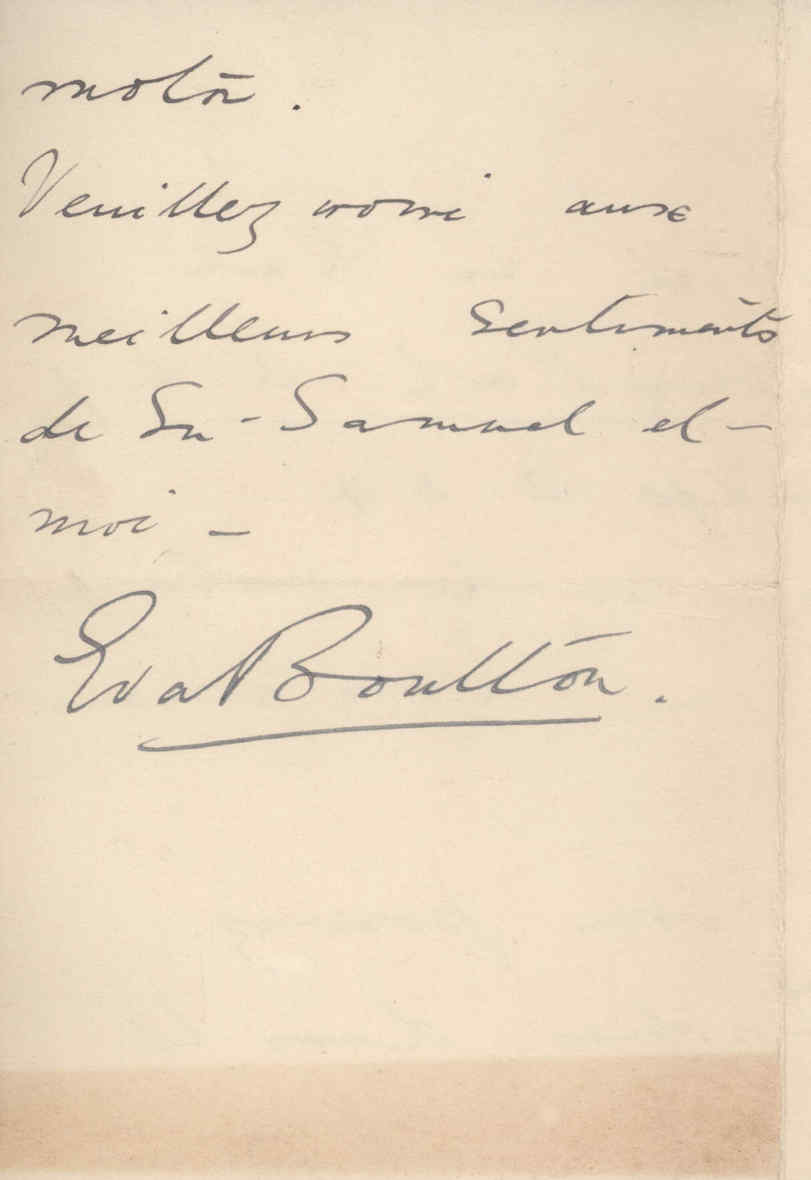 motor.
Veuillez croire aux
meilleurs sentiments
de Sir Samuel et
moi -
Eva Boulton.